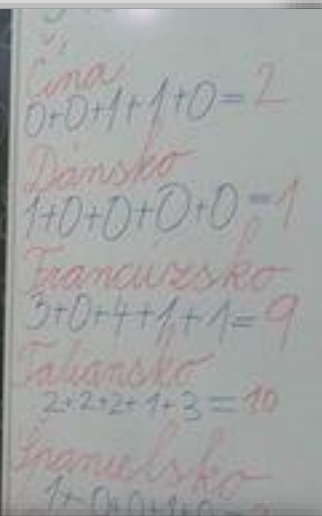 Čína
0+0+1+1+0=2
Dánsko
1+0+0+0+0=1
Francúzsko
3+0+4+1+1=9
Taliansko
2+2+2+1+3=10
Španielsko
1+0+0+1+0=